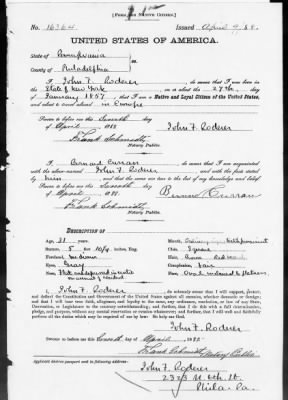 [FORM FOR NATIVE CITIZEN.]
No. 16364 Issued April 9, 88.
UNITED STATES OF AMERICA.
State of Pennsylvania
County of Philadelphia
I, John F. Roderer do swear that I was born in
the State of New York on or about the 27th day of
January 1857 that I am a Native and Loyal Citizen of the United States,
and about to travel abroad in Europe
Sworn to before me this Seventh day
of April 1888 John F. Roderer
Frank Schmidt
Notary Public.
I, Bernard Curran do swear that I am acquainted
with the above-named John F. Roderer and with the facts stated
by him and that the same are true to the best of my knowledge and belief.
Sworn to before me this Seventh day
of April 1888 Bernard Curran
Frank Schmidt
Notary Public.
DESCRIPTION OF
Age, 31 years. Mouth,
Stature, 5 feet inches, Eng. Chin, Square
Forehead, medium Hair,
Eyes, Gray Complexion, Fair
Nose, Face, Oval
I, John F. Roderer do solemnly swear that I will support, protect,
and defend the Constitution and Government of the United States against all enemies, whether domestic or foreign;
and that I will bear true faith, allegiance, and loyalty to the same, any ordinance, resolution, or law of any State,
Convention, or Legislature to the contrary notwithstanding; and further, that I do this with a full determination,
pledge, and purpose, without any mental reservation or evasion whatsoever; and further, that I will well and faithfully
perform all the duties which may be required of me by law: So help me God.
John F. Roderer
Sworn to before me this Seventh day of April 1888
Frank Schmidt
Notary Public
Applicant desires passport sent to following address:
John F. Roderer
2323 N. 6th St.
Phila. Pa.